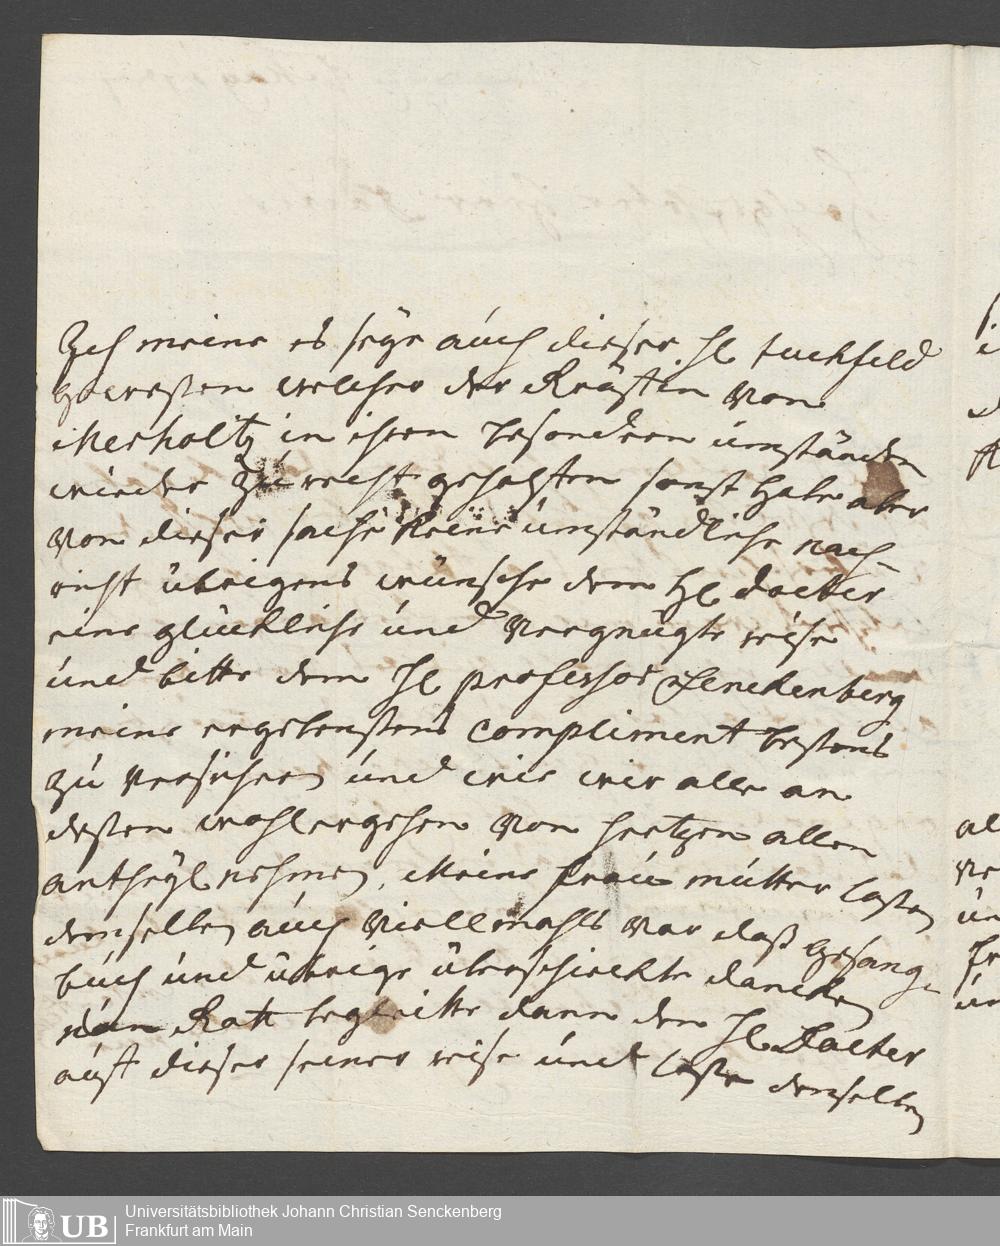 Ich meine es seye auch dieser H. tuchfeld
gewesen welcher der Gräffin von
Merholtz in ihren besondern umständen
wieder zu recht geholffen sonst habe aber
von dieser sache keine umständliche nach-
richt übrigens wünsche dem H. docter
eine glückliche und vergnügte reise
und bitte dem H. professor Senckenberg
meine ergebenstens compliment bestens
zu versichern und wie wir alle an
dessen wohlergehen von hertzen allen
antheyl nehmen. Meine frau mutter lassen
demselben auch viellmahls vor daß gesang-
buch und übrige überschickte dancken
begleitte dann den H. Docter
auff dieser seiner reise und lasse demselben
Universitätsbibliothek Johann Christian Senckenberg
Frankfurt am Main
UB